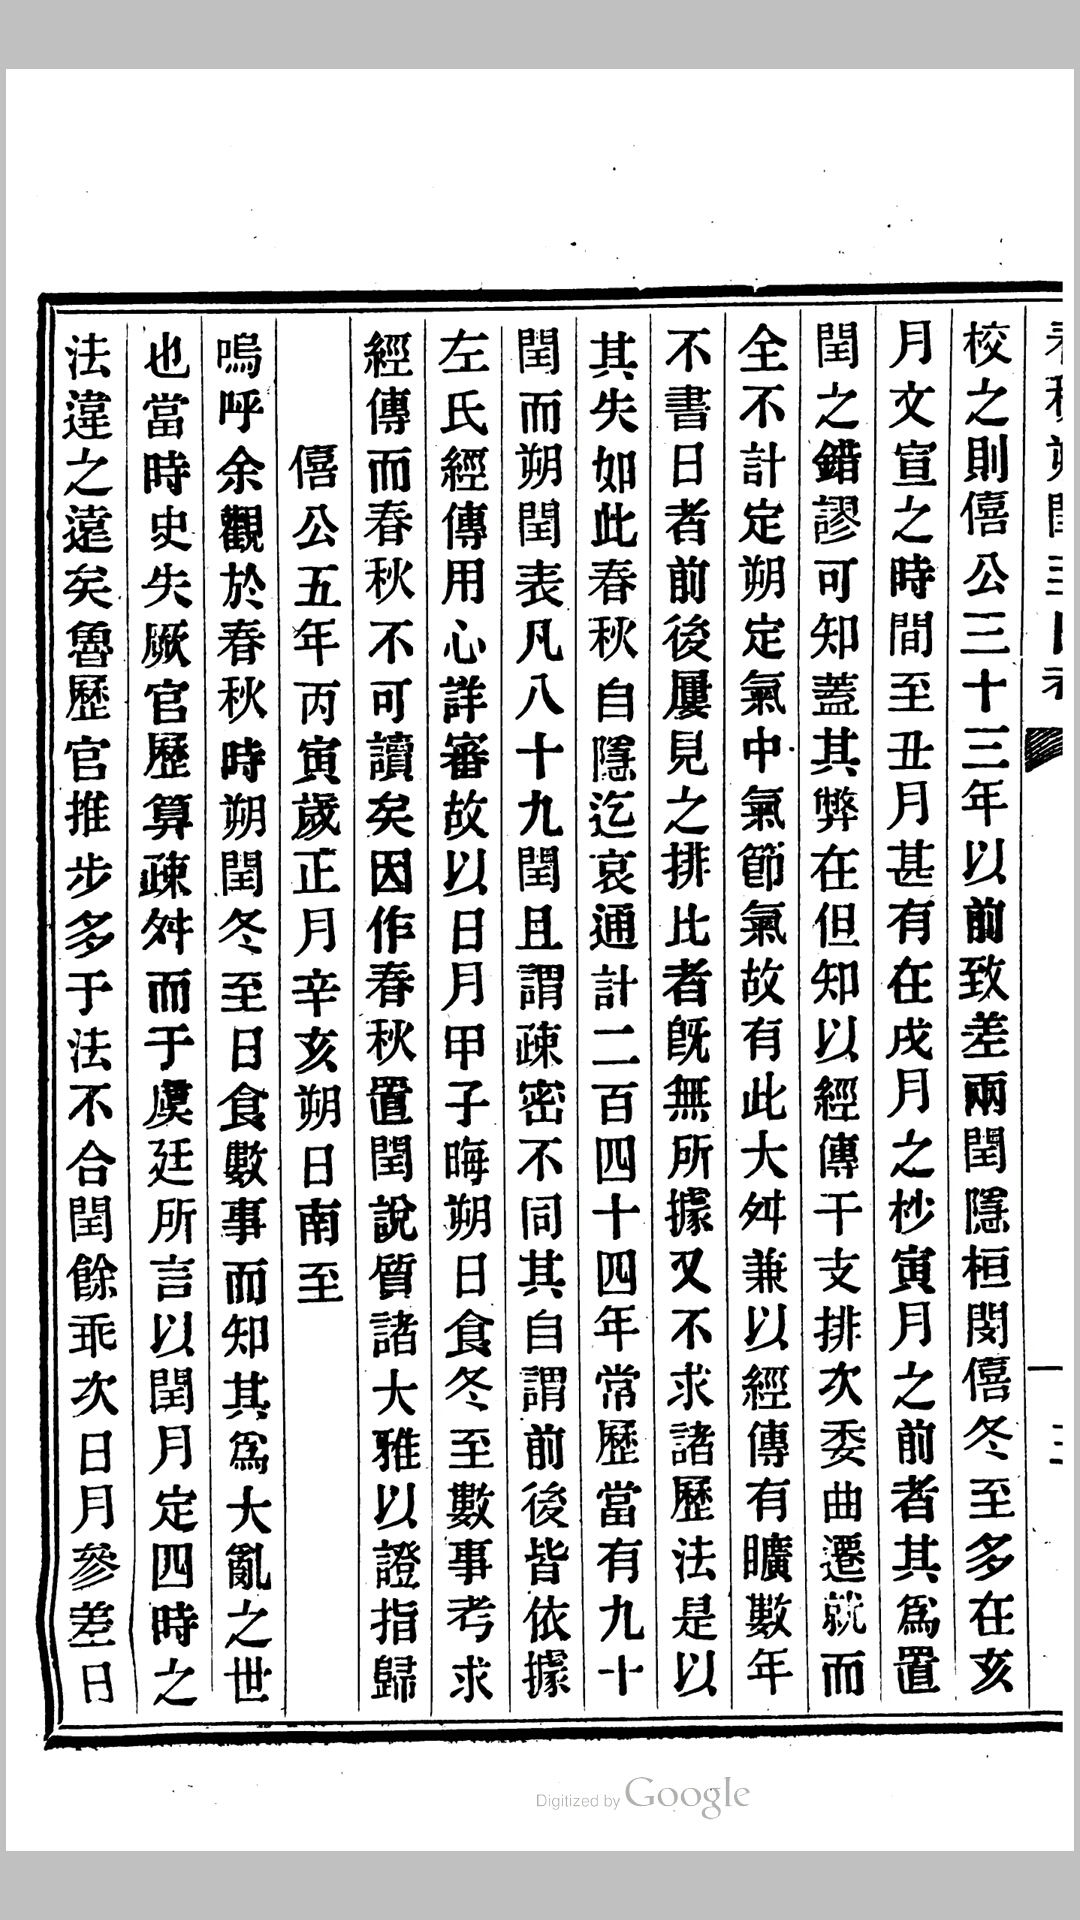 校之則僖公三十三年以前致差兩閏隱桓閔僖冬至多在亥
月文宣之時間至丑月甚有在戌月之杪寅月之前者其爲置
閏之錯謬可知蓋其弊在但知以經傳干支排次委曲遷就而
全不計定朔定氣中氣節氣故有此大舛兼以經傳有曠數年
不書日者前後屢見之排比者既無所據又不求諸歷法是以
其失如此春秋自隱迄哀通計二百四十四年常歷當有九十
閏而朔閏表凡八十九閏且謂疎密不同其自謂前後皆依據
左氏經傳用心詳審故以日月甲子晦朔日食冬至數事考求
經傳而春秋不可讀矣因作春秋置閏說質諸大雅以證指歸
僖公五年丙寅歲正月辛亥朔日南至
嗚呼余觀於春秋時朔閏冬至日食數事而知其爲大亂之世
也當時史失厥官歷算疎舛而于虞廷所言以閏月定四時之
法違之遠矣魯歷官推步多于法不合閏餘乖次日月參差日
Digitized by Google